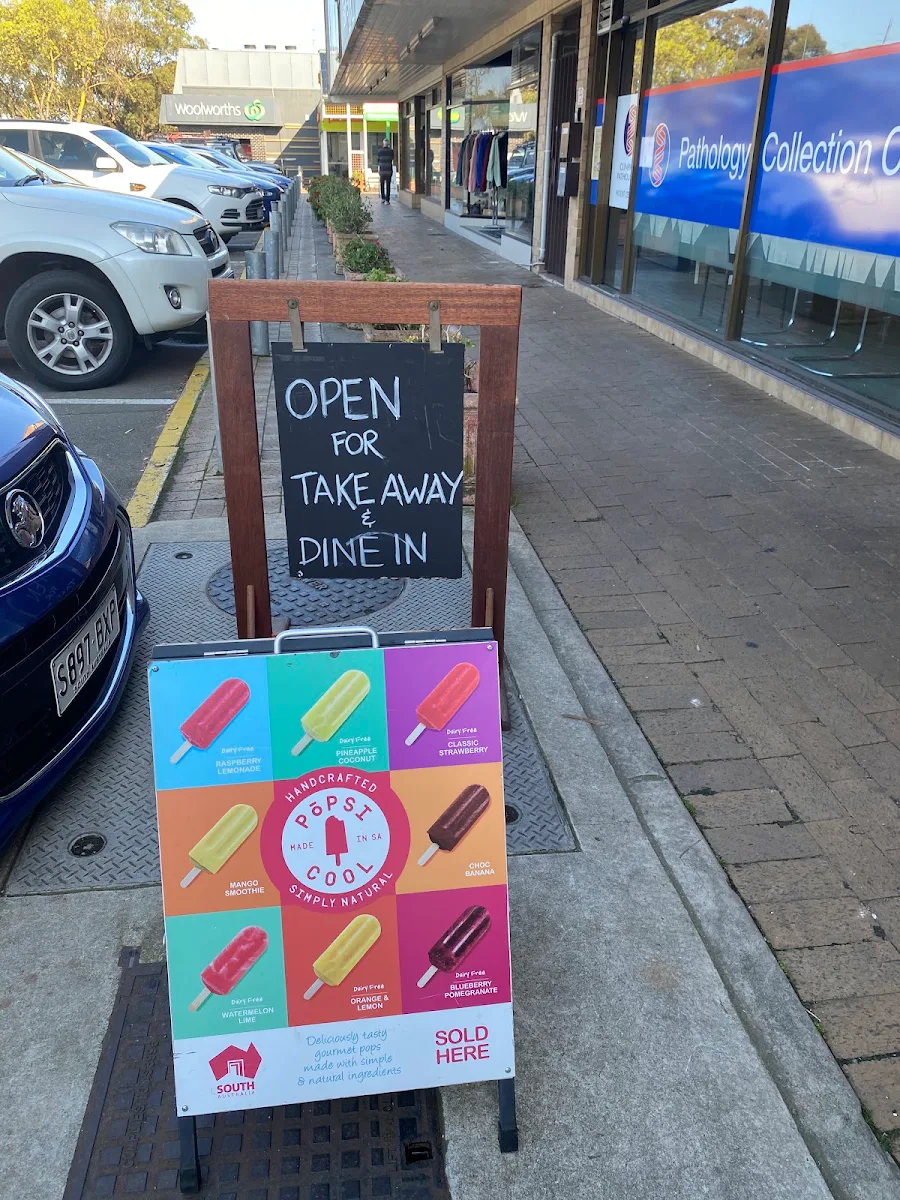 Woolworths
Pathology Collection C
OPEN
FOR
TAKE AWAY
&
DINE IN
S897·BXP
Dairy Free
RASPBERRY
LEMONADE
Dairy Free
PINEAPPLE
COCONUT
Dairy Free
CLASSIC
STRAWBERRY
MANGO
SMOOTHIE
HANDCRAFTED
PŌPSI
MADE IN SA
COOL
SIMPLY NATURAL
CHOC
BANANA
Dairy Free
WATERMELON
LIME
Dairy Free
ORANGE &
LEMON
Dairy Free
BLUEBERRY
POMEGRANATE
SOUTH
AUSTRALIA
Deliciously tasty
gourmet pops
made with simple
& natural ingredients
SOLD
HERE